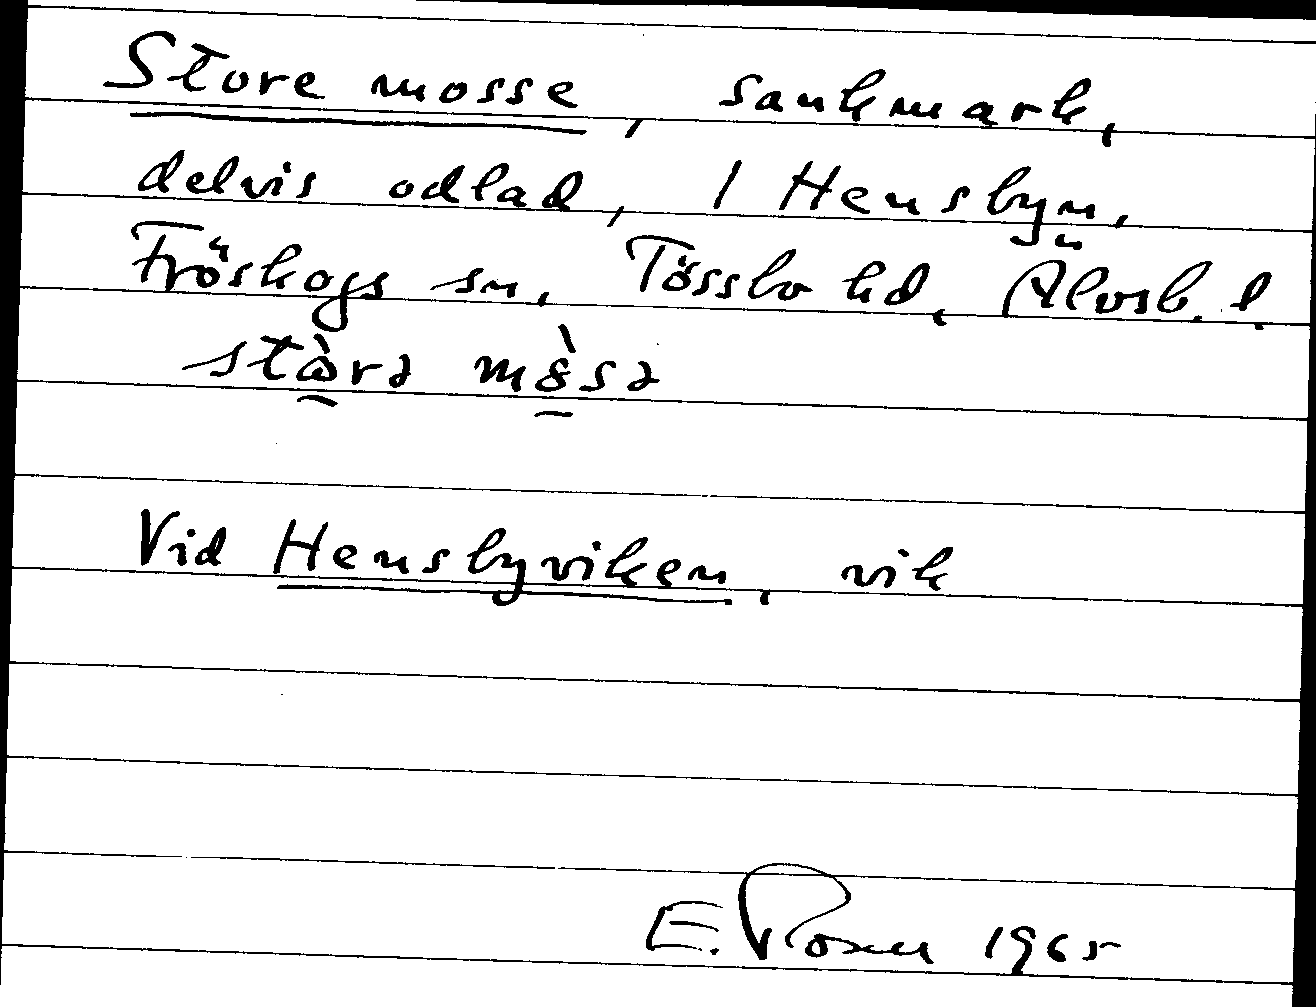 Store mosse, sankmark,
delvis odlad, 1 Hensbyn,
Fröskogs sn, Tössbo hd, Älvsb. l.
Vid Hensbyviken, vik
E. Rosell 1965